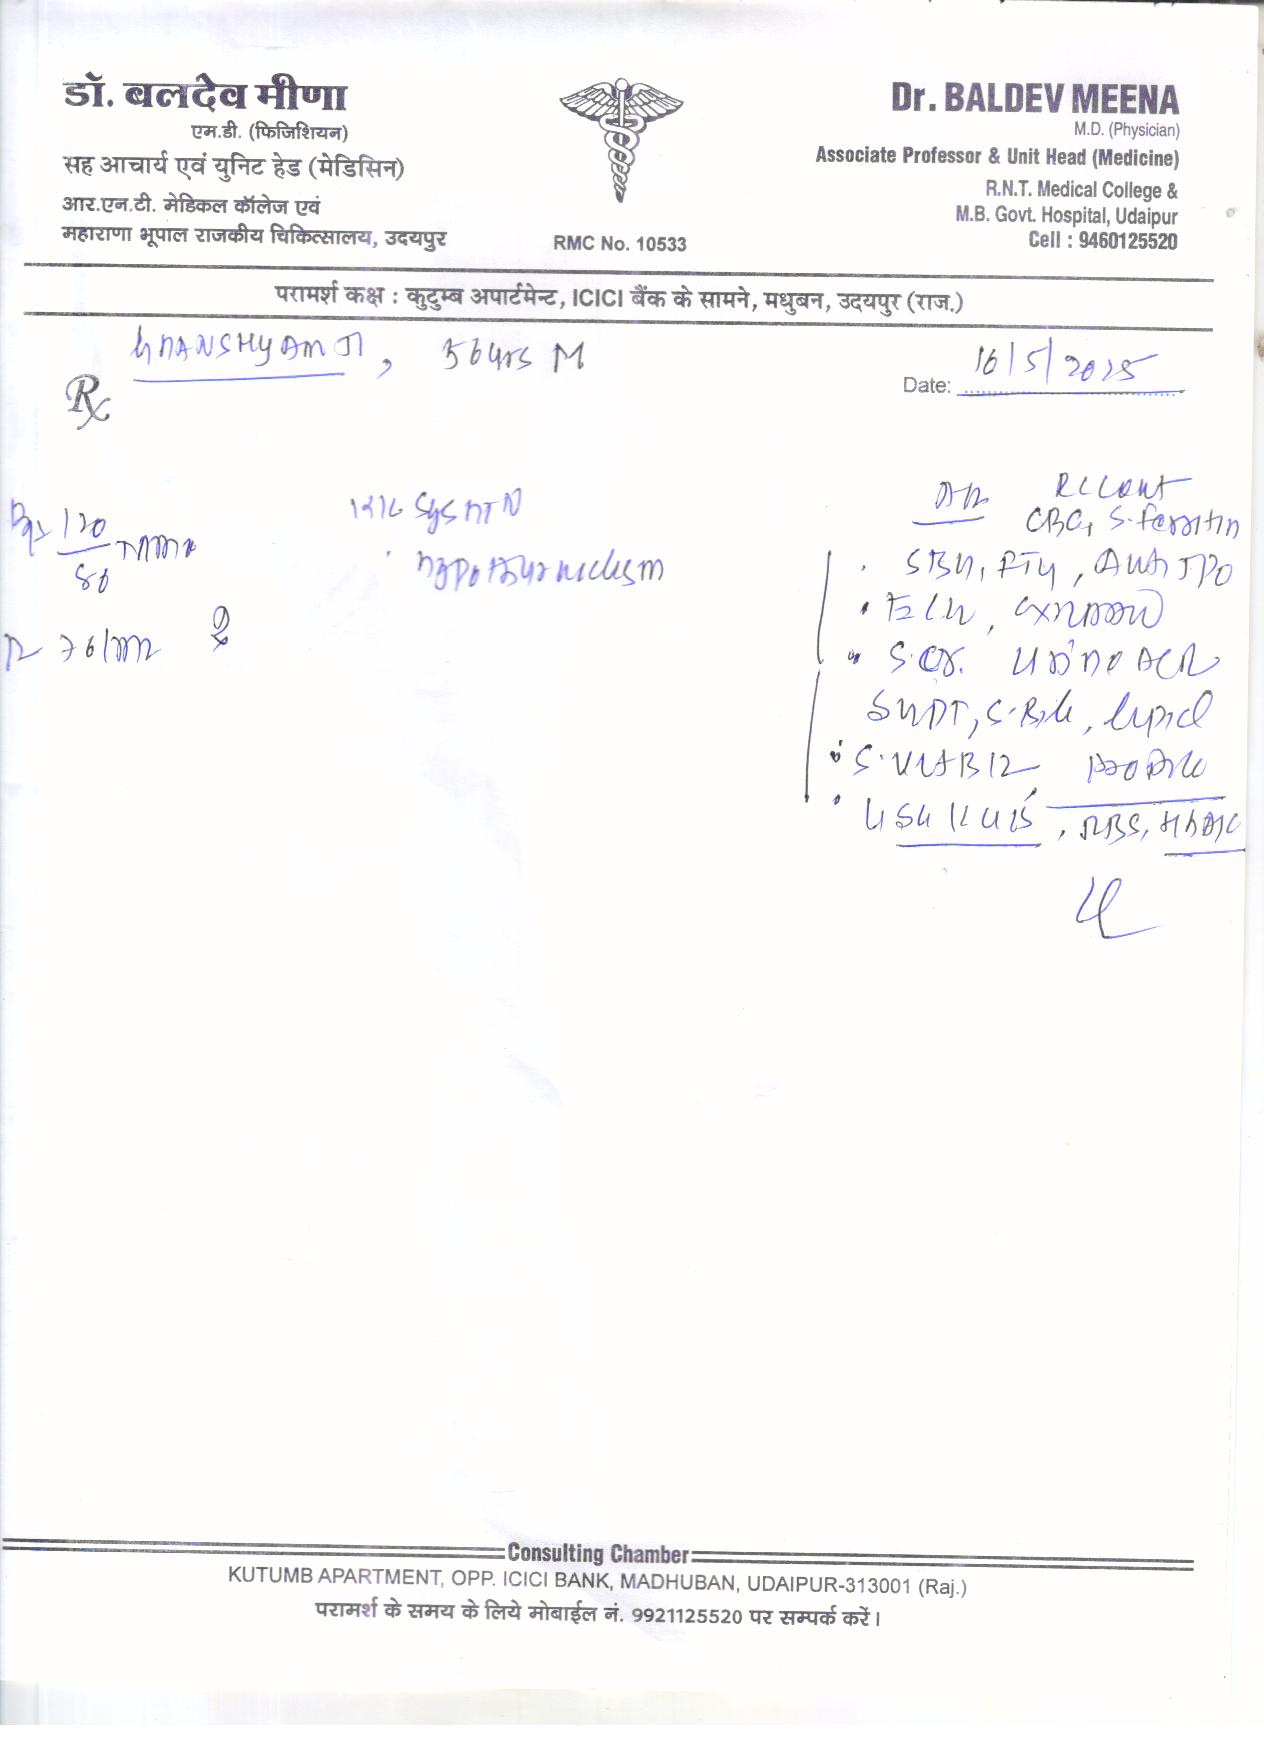 डॉ. बलदेव मीणा
एम.डी. (फिजिशियन)
सह आचार्य एवं युनिट हेड (मेडिसिन)
आर.एन.टी. मेडिकल कॉलेज एवं
महाराणा भूपाल राजकीय चिकित्सालय, उदयपुर
RMC No. 10533
Dr. BALDEV MEENA
M.D. (Physician)
Associate Professor & Unit Head (Medicine)
R.N.T. Medical College &
M.B. Govt. Hospital, Udaipur
Cell : 9460125520
परामर्श कक्ष : कुटुम्ब अपार्टमेन्ट, ICICI बैंक के सामने, मधुबन, उदयपुर (राज.)
GHANSHYAM JI, 56 yrs M
Date: 16/5/2025
Rx
120
80 mmHg
76/m
Sys HTN
hypothyroidism
Recent
CBC, S. Ferritin
FT4, Anti TPO
ECG, CX
S. Cr. Urine ACR
SGPT, S. Bil, Lipid
S. Vit B12 Profile
USG KUB, RBS, HbA1C
Consulting Chamber
KUTUMB APARTMENT, OPP. ICICI BANK, MADHUBAN, UDAIPUR-313001 (Raj.)
परामर्श के समय के लिये मोबाईल नं. 9921125520 पर सम्पर्क करें।